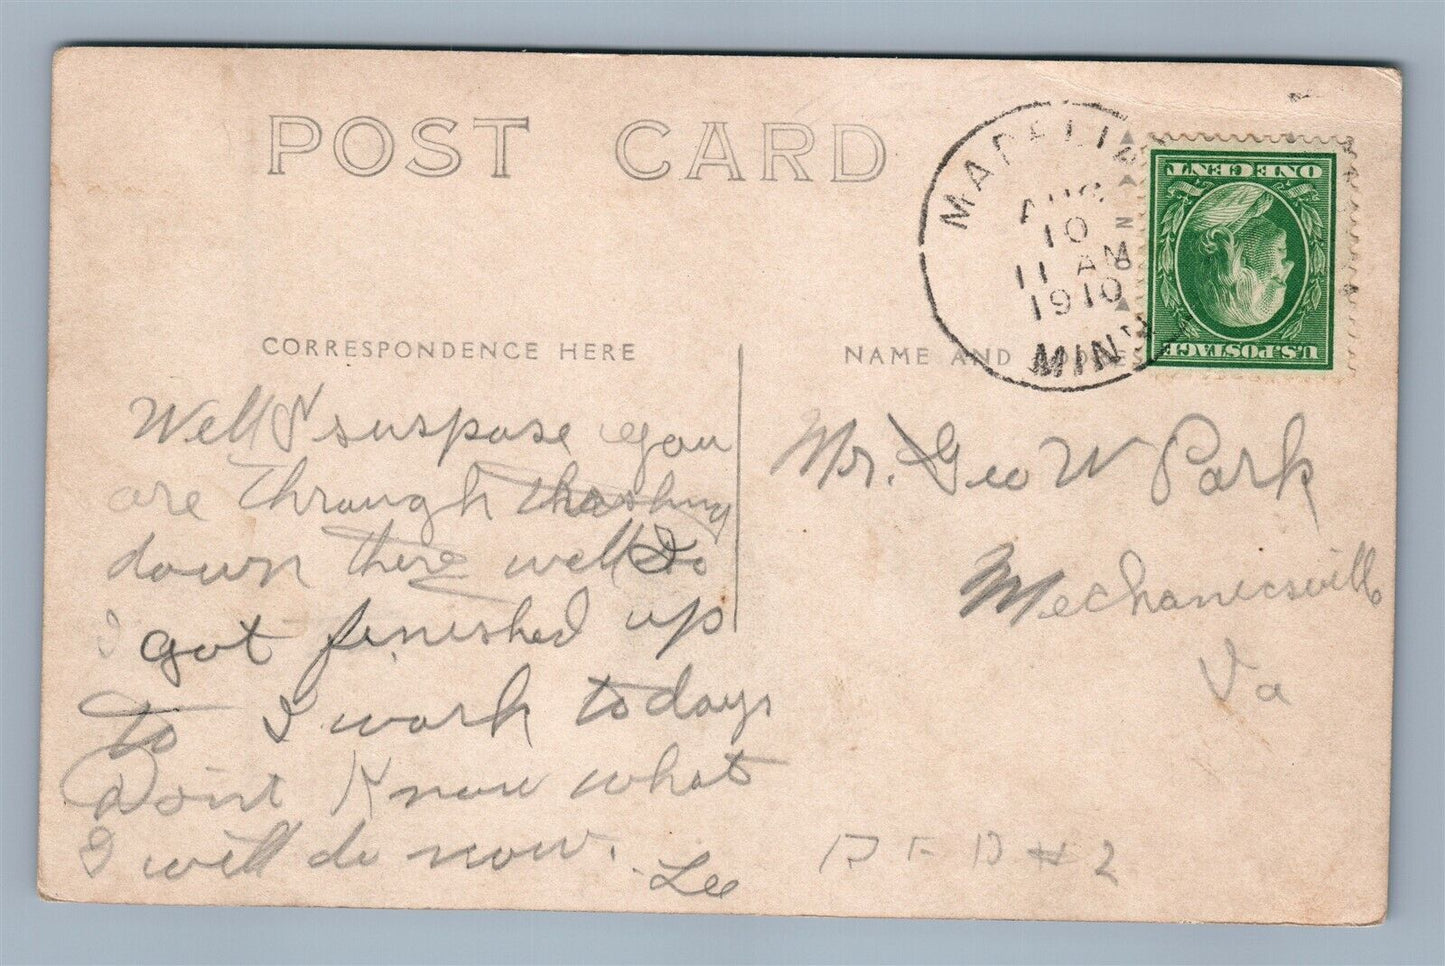 POST CARD
MADELIA
AUG
10
11 AM
1910
MINN
ONE CENT
U.S. POSTAGE
CORRESPONDENCE HERE
NAME AND ADDRESS
Well I suspose you
are through thrashing
down there well
I got finished up
to I work todays
Don't Know what
I will do now.
Lee
Mr. Geo W Park
Mechanicsville
Va
R F D # 2